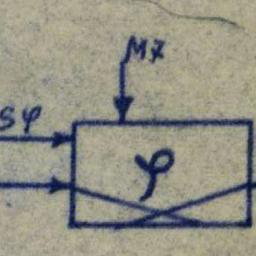 MX
Sφ
φ